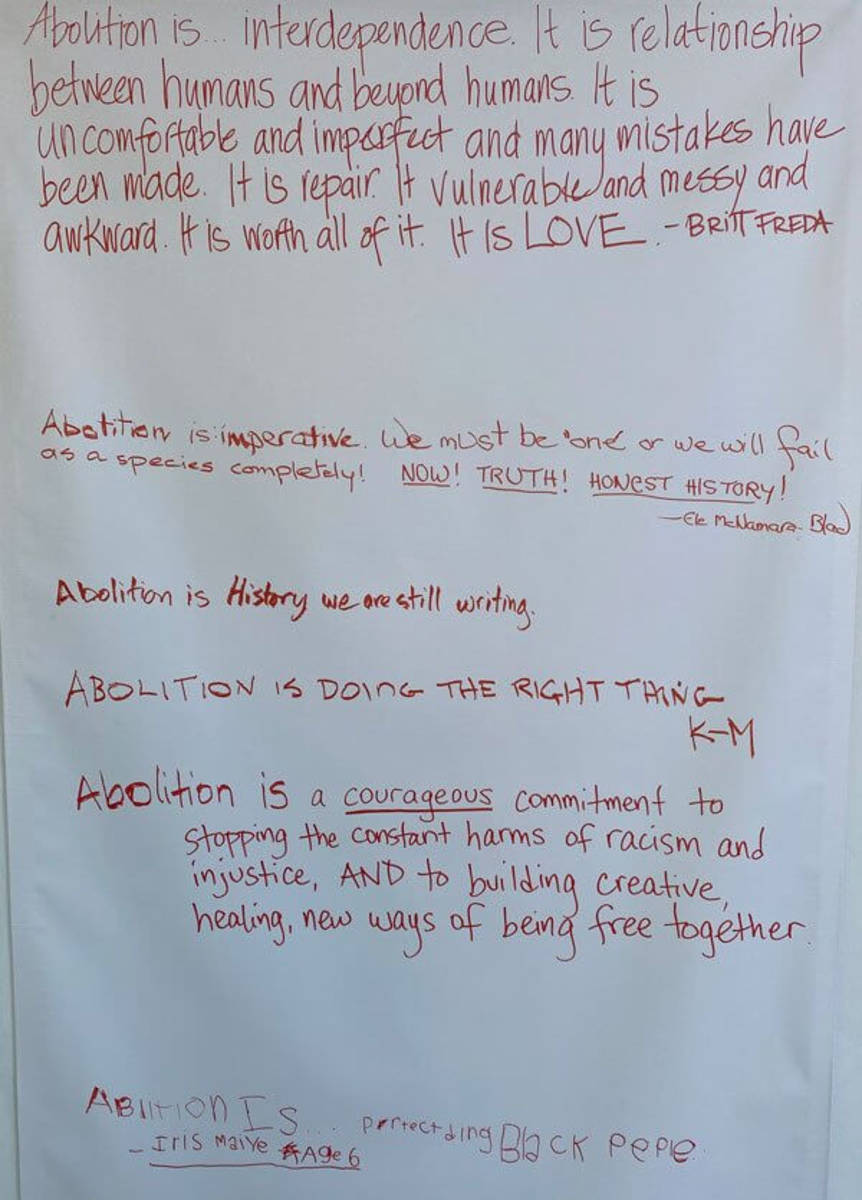 Abolition is... interdependence. It is relationship
between humans and beyond humans. It is
uncomfortable and imperfect and many mistakes have
been made. It is repair. It vulnerable and messy and
awkward. It is worth all of it. It IS LOVE. - BRITT FREDA
Abolition is imperative. We must be 'one' or we will fail
as a species completely! NOW! TRUTH! HONEST HISTORY!
- Ele McNamara-
Abolition is History we are still writing.
ABOLITION IS DOING THE RIGHT THING
K-M
Abolition is a courageous commitment to
stopping the constant harms of racism and
injustice, AND to building creative,
healing, new ways of being free together.
ABIITION IS... Black PePle.
- IrIS Maive Age 6